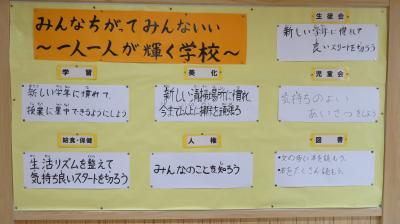 みんなちがって みんないい
～一人一人が輝く学校～
生徒会
新しい学年に慣れて
良いスタートをきろう
学習
新しい学年に慣れて、
授業に集中できるようにしよう
美化
新しい清掃場所に慣れ
今まで以上に掃除を頑張ろう
児童会
気持ちのよい
あいさつをしよう
給食・保健
生活リズムを整えて
気持ち良いスタートをきろう
人権
みんなのことを知ろう
図書
本をたくさん読もう